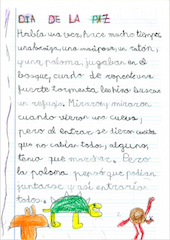 DIA DE LA PAZ
Había una vez, hace mucho tiempo,
una abeja, una mariposa, un ratón,
y una paloma, jugaban en el
bosque, cuando de repente una
fuerte tormenta les hizo buscar
un refugio. Miraron, miraron
cuando vieron una cueva,
pero al entrar se dieron cuenta
que no cabían todos, alguno,
tenía que marchar. Pero
la paloma pensó que podían
juntarse y así entrarían
todos.